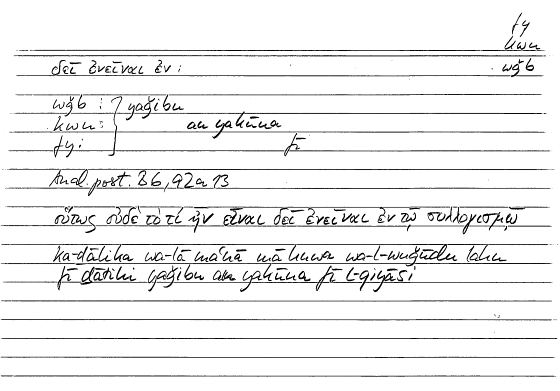 fy
kwn
wǧb
δεῖ ἐνεῖναι ἐν :
wǧb : } yaǧibu
kwn : an yakūna
fy : fī
Anal. post. B 6, 92 a 13
οὕτως οὐδὲ τὸ τί ἦν εἶναι δεῖ ἐνεῖναι ἐν τῷ συλλογισμῷ
ka-ḏālika wa-lā maʿnā mā huwa wa-l-wuǧūdu lahu
fī ḏātihi yaǧibu an yakūna fī l-qiyāsi